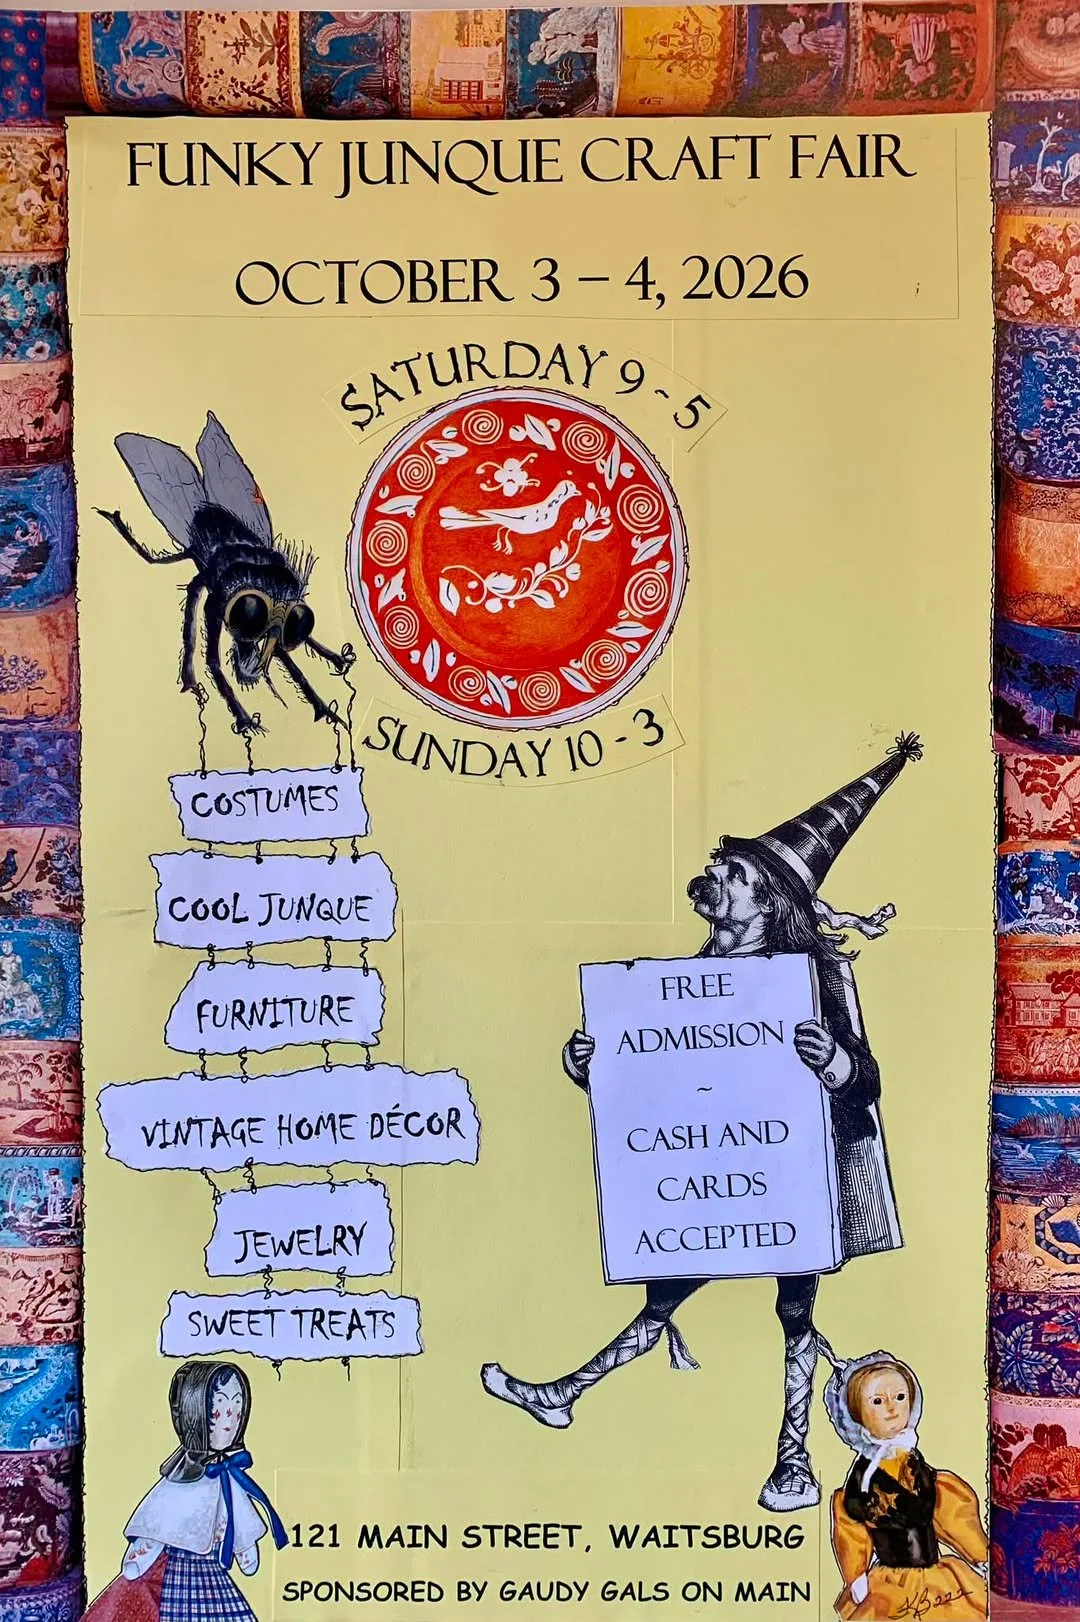 FUNKY JUNQUE CRAFT FAIR
OCTOBER 3 – 4, 2026
SATURDAY 9 - 5
SUNDAY 10 - 3
COSTUMES
COOL JUNQUE
FURNITURE
VINTAGE HOME DÉCOR
JEWELRY
SWEET TREATS
FREE
ADMISSION
~
CASH AND
CARDS
ACCEPTED
121 MAIN STREET, WAITSBURG
SPONSORED BY GAUDY GALS ON MAIN